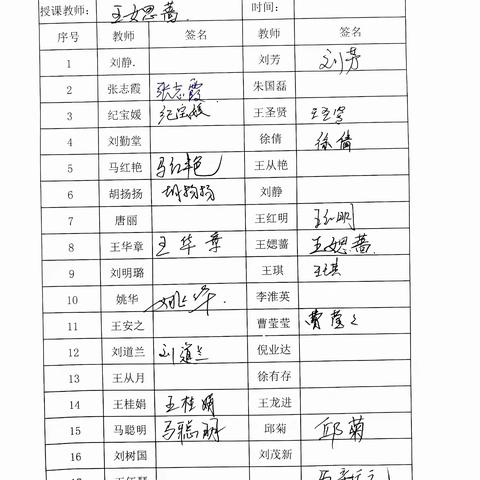 授课教师： 王媤蔷 时间：
序号 教师 签名 教师 签名
1 刘静. 刘芳 刘芳
2 张志霞 张志霞 朱国磊
3 纪宝媛 纪宝媛 王圣贤 王圣贤
4 刘勤堂 徐倩 徐倩
5 马红艳 马红艳 王从艳
6 胡扬扬 胡扬扬 刘静
7 唐丽 王红明 王红明
8 王华章 王华章 王媤蔷 王媤蔷
9 刘明璐 王琪 王琪
10 姚华 姚华. 李淮英
11 王安之 曹莹莹 曹莹々
12 刘道兰 刘道兰 倪业达
13 王从月 徐有存
14 王桂娟 王桂娟 王龙进
15 马聪明 马聪明 邱菊 邱菊
16 刘树国 刘茂新